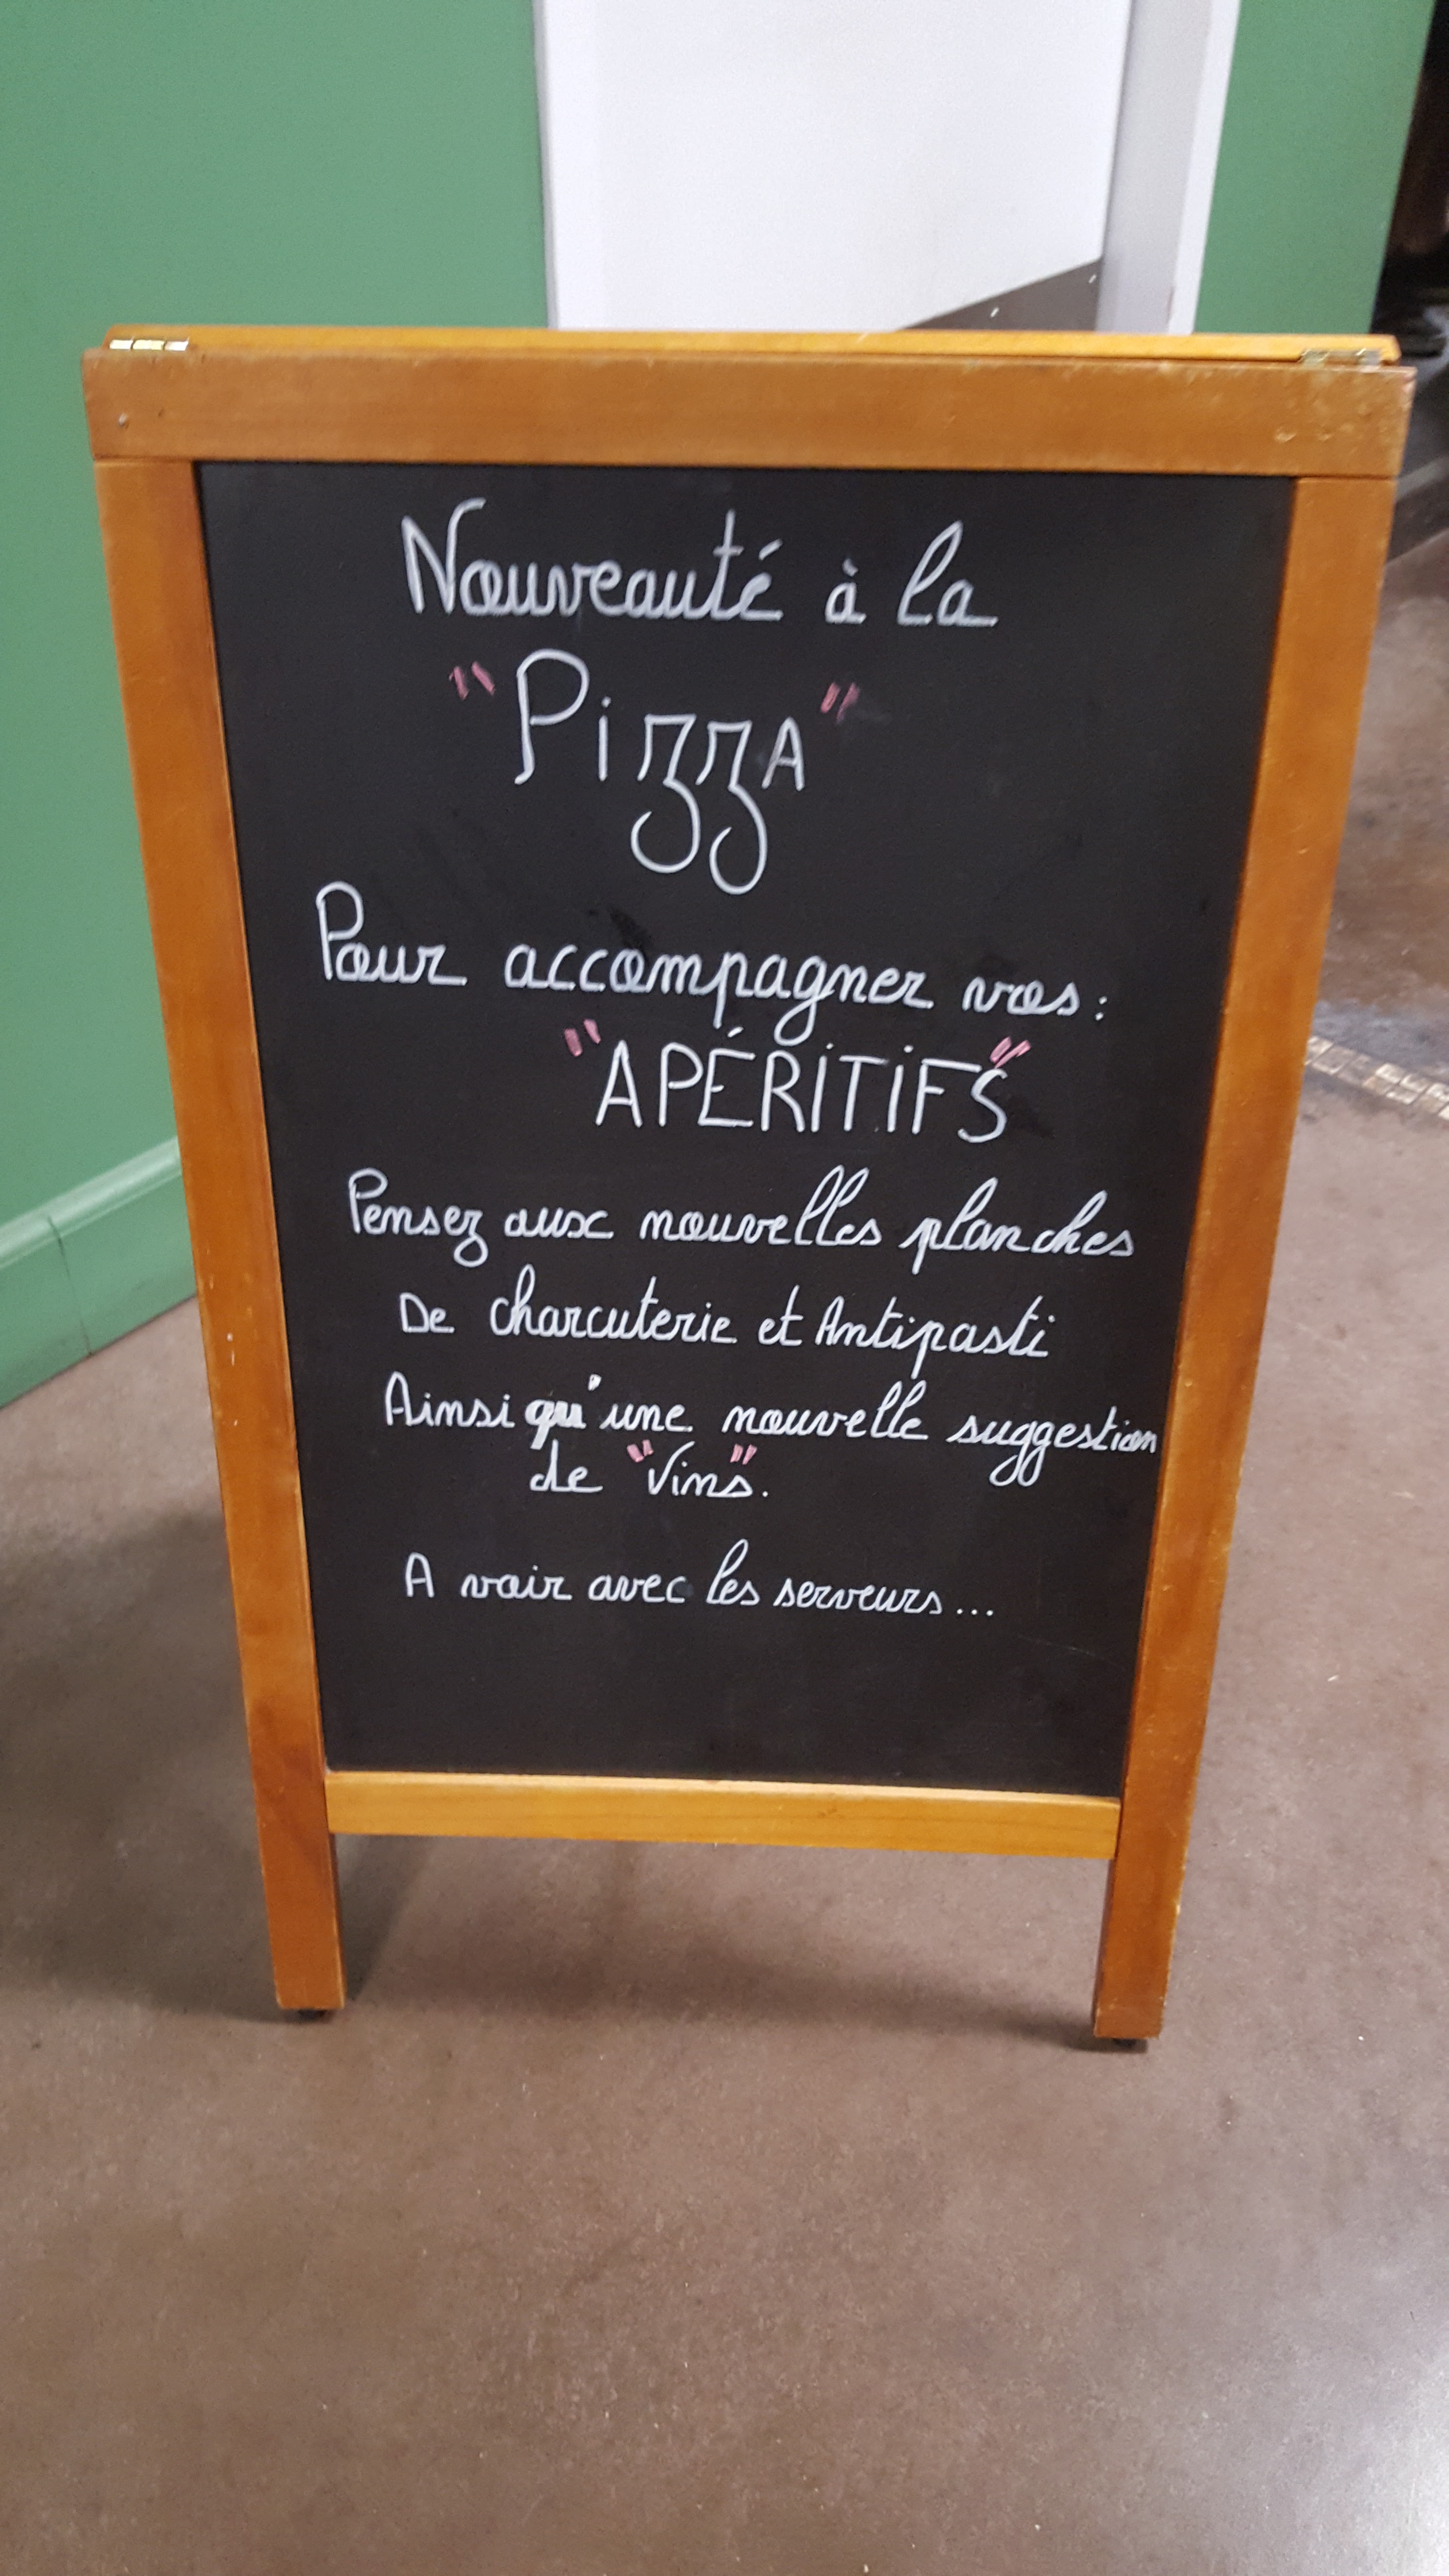 Nouveauté à la
"PizzA"
Pour accompagner vos :
"APÉRiTiFS"
Pensez aux nouvelles planches
De charcuterie et Antipasti
Ainsi qu'une nouvelle suggestion
de "Vins".
A voir avec les serveurs...